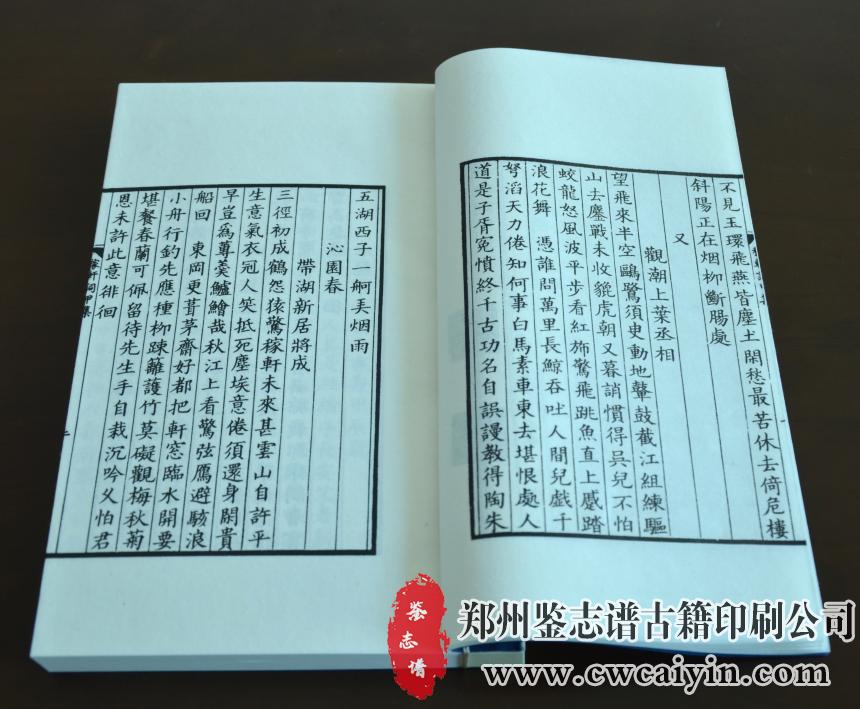 不見玉環飛燕皆塵土閑愁最苦休去倚危樓
斜陽正在烟柳斷腸處
又
觀潮上葉丞相
望飛來半空鷗鷺須臾動地鼙鼓截江組練驅
山去鏖戰未收貔虎朝又暮誚慣得吳兒不怕
蛟龍怒風波平步看紅斾驚飛跳魚直上蹙踏
浪花舞 憑誰問萬里長鯨吞吐人間兒戲千
弩滔天力倦知何事白馬素車東去堪恨處人
道是子胥冤憤終千古功名自誤謾教得陶朱
五湖西子一舸弄烟雨
沁園春
帶湖新居將成
三徑初成鶴怨猿驚稼軒未來甚雲山自許平
生意氣衣冠人笑抵死塵埃意倦須還身閑貴
早豈為蓴羹鱸鱠哉秋江上看驚弦鴈避駭浪
船回 東岡更葺茅齋好都把軒窓臨水開要
小舟行釣先應種柳踈籬護竹莫礙觀梅秋菊
堪餐春蘭可佩留待先生手自栽沉吟乆怕君
恩未許此意徘徊
鉴志谱
郑州鉴志谱古籍印刷公司
www.cwcaiyin.com